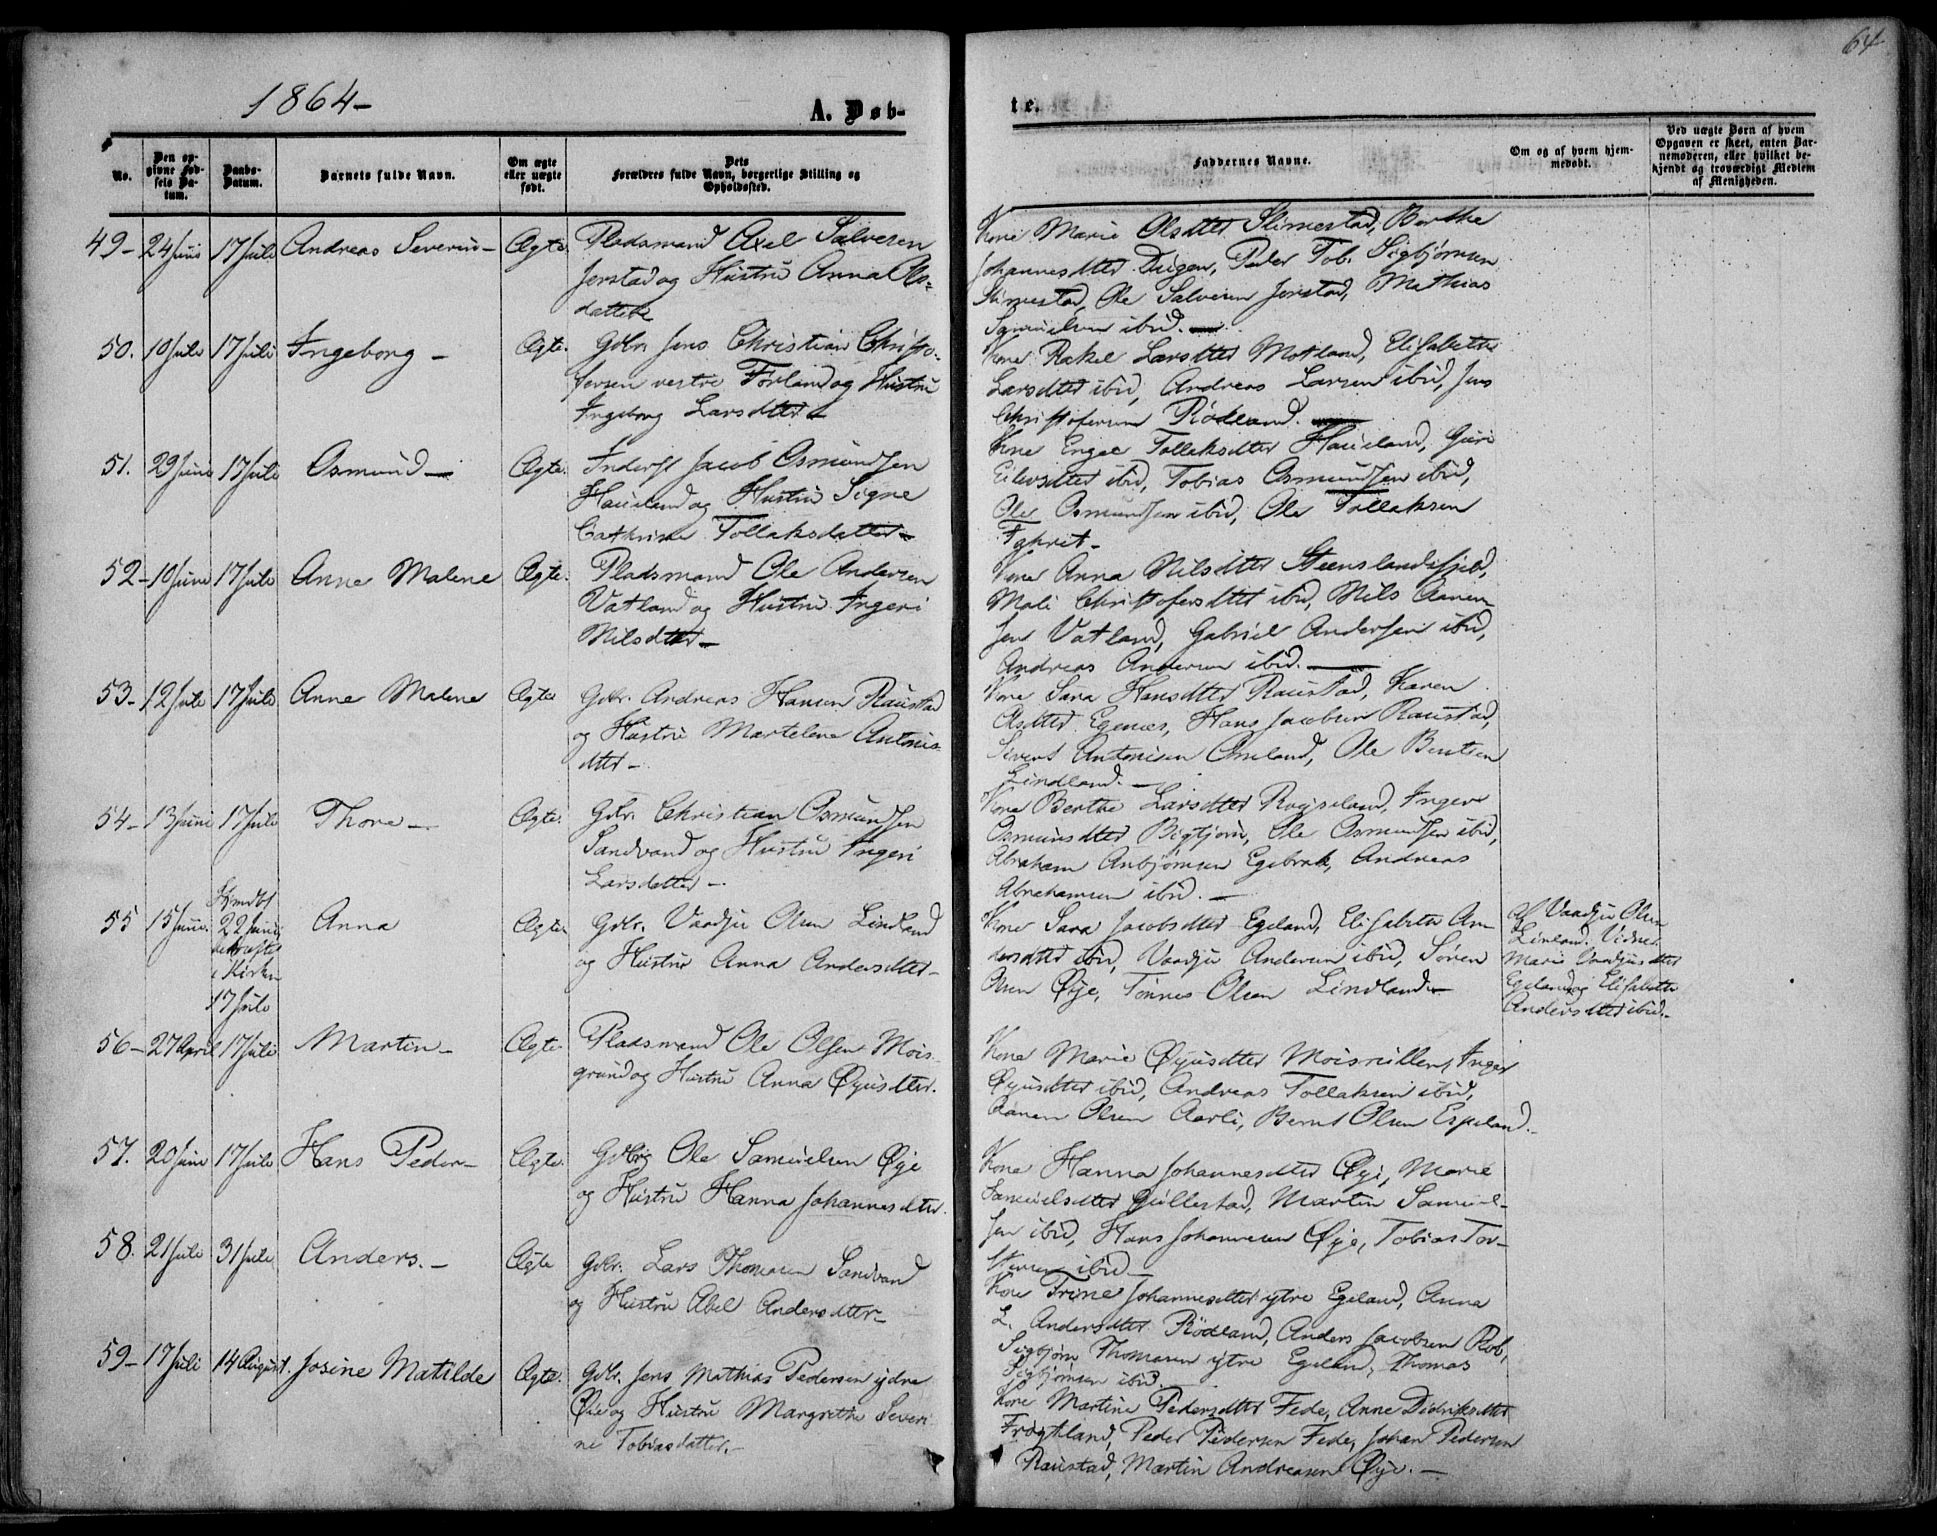 64
1864-
A. Døb-
te.
No.
Den opgivne Fødsels Datum.
Daabs-Datum.
Barnets fulde Navn.
Om ægte eller uægte født.
Dets Forældres fulde Navn, borgerlige Stilling og Opholdssted.
Faddernes Navne.
Om og af hvem hjemmedøbt.
Ved uægte Børn af hvem Opgaven er skeet, enten Barnemoderen, eller hvilket bekjendt og troværdigt Medlem af Menigheden.
49- 24 Juni 17 Juli Andreas Severin- Ægte. Pladsmand Axel Salvesen
Jerstad og Hustru Anna Ols-
datter
Kone Marie Olsdtter Slimestad, Berthe
Johannesdtter Dugen, Peder Tob. Sigbjørnsen
Slimestad, Ole Salvesen Jerstad, Mathias
Samuelsen ibid.
50. 10 Juli 17 Juli Ingeborg - Ægte. Gdbr. Jens Christian Christo-
fersen vestre Førland og Hustru
Ingeborg Larsdtter
Kone Rakel Larsdtter Motland, Elisabeth
Larsdtter ibid, Andreas Larsen ibid, Jens
Christofersen Rødland.
51. 29 Juni 17 Juli Osmund - Ægte. Inderst Jacob Osmundsen
Haueland og Hustru Signe
Cathrine Tollaksdatter-
Kone Engel Tollaksdtter Haueland, Guri
Eilevsdtter ibid, Tobias Osmundsen ibid,
Ole Osmundsen ibid, Ole Tollaksen
52- 10 Juni 17 Juli Anne Malene Ægte. Pladsmand Ole Andersen
Vatland og Hustru Ingeri
Nilsdtter-
Kone Anna Nilsdtter Steenslandsfjeld,
Mali Christofersdtter ibid, Nils Aanen-
sen Vatland, Gabriel Andersen ibid,
Andreas Andersen ibid.-
53- 12 Juli 17 Juli Anne Malene Ægte Gdbr. Andreas Hansen Raustad
og Hustru Martelene Antonis-
dtter-
Kone Sara Hansdtter Raustad, Karen
Olsdtter Egenes, Hans Jacobsen Raustad,
Sivert Antonisen Omland, Ole Bentsen
Lindland.-
54- 13 Juni 17 Juli Thore- Ægte. Gdbr. Christian Osmundsen
Sandvand og Hustru Ingeri
Larsdatter-.
Kone Berthe Larsdtter Røyseland, Inger
Osmundsdtter Bigtjørn, Ole Osmundsen ibid,
Abraham Anbjørnsen Egebrok, Andreas
Abrahamsen ibid.-
55 15 Juni. Hjmdbt 22 Juni, bekræftet i Kirken 17 Juli Anna Ægte. Gdbr. Vaadju Olsen Lindland
og Hustru Anna Andersdtter-
Kone Sara Jacobsdtter Egeland, Elisabeth An-
dersdtter ibid, Vaadju Andersen ibid, Søren
Olsen Øye, Tønnes Olsen Lindland-
Af Vaadju Olsen
Linland. Vidner
Marie Vaadjusdtter
Egeland og Elisabeth
Andersdtter ibid.-
56- 27 April 17 Juli Martin- Ægte. Pladsmand Ole Olsen Mois-
grund og Hustru Anna Øyusdtter.
Kone Marie Øyusdtter Moisrullen, Inger
Øyusdtter ibid, Andreas Tollaksen ibid,
Aanen Olsen Aarli, Bernt Olsen Espeland.-
57. 20 Juni 17 Juli Hans Peder- Ægte. Gdbr. Ole Samuelsen Øye
og Hustru Hanna Johannesdtter.
Kone Hanna Johannesdtter Øye, Marie
Samuelsdtter Gullestad, Martin Samuel-
sen ibid, Hans Johannesen Øye, Tobias Tor-
stensen ibid-
58. 21 Juli 31 Juli Anders.- Ægte Gdbr. Lars Thomasen Sandvand
og Hustru Abel Andersdtter-
Kone Trine Johannesdtter ytre Egeland, Anna
L. Andersdtter Rødland, Anders Jacobsen Rob,
Sigbjørn Thomasen ytre Egeland, Thomas
Sigbjørnsen ibid.
59- 17 Juli 14 August. Josine Matilde Ægte. Gdbr. Jens Mathias Pedersen ydre
Øie og Hustru Margrethe Severi-
ne Tobiasdatter.-
Kone Martine Pedersdtter Fede, Anne Didriksdtter
Frøytland, Peder Pedersen Fede, Johan Pedersen
Raustad, Martin Andreasen Øye.-